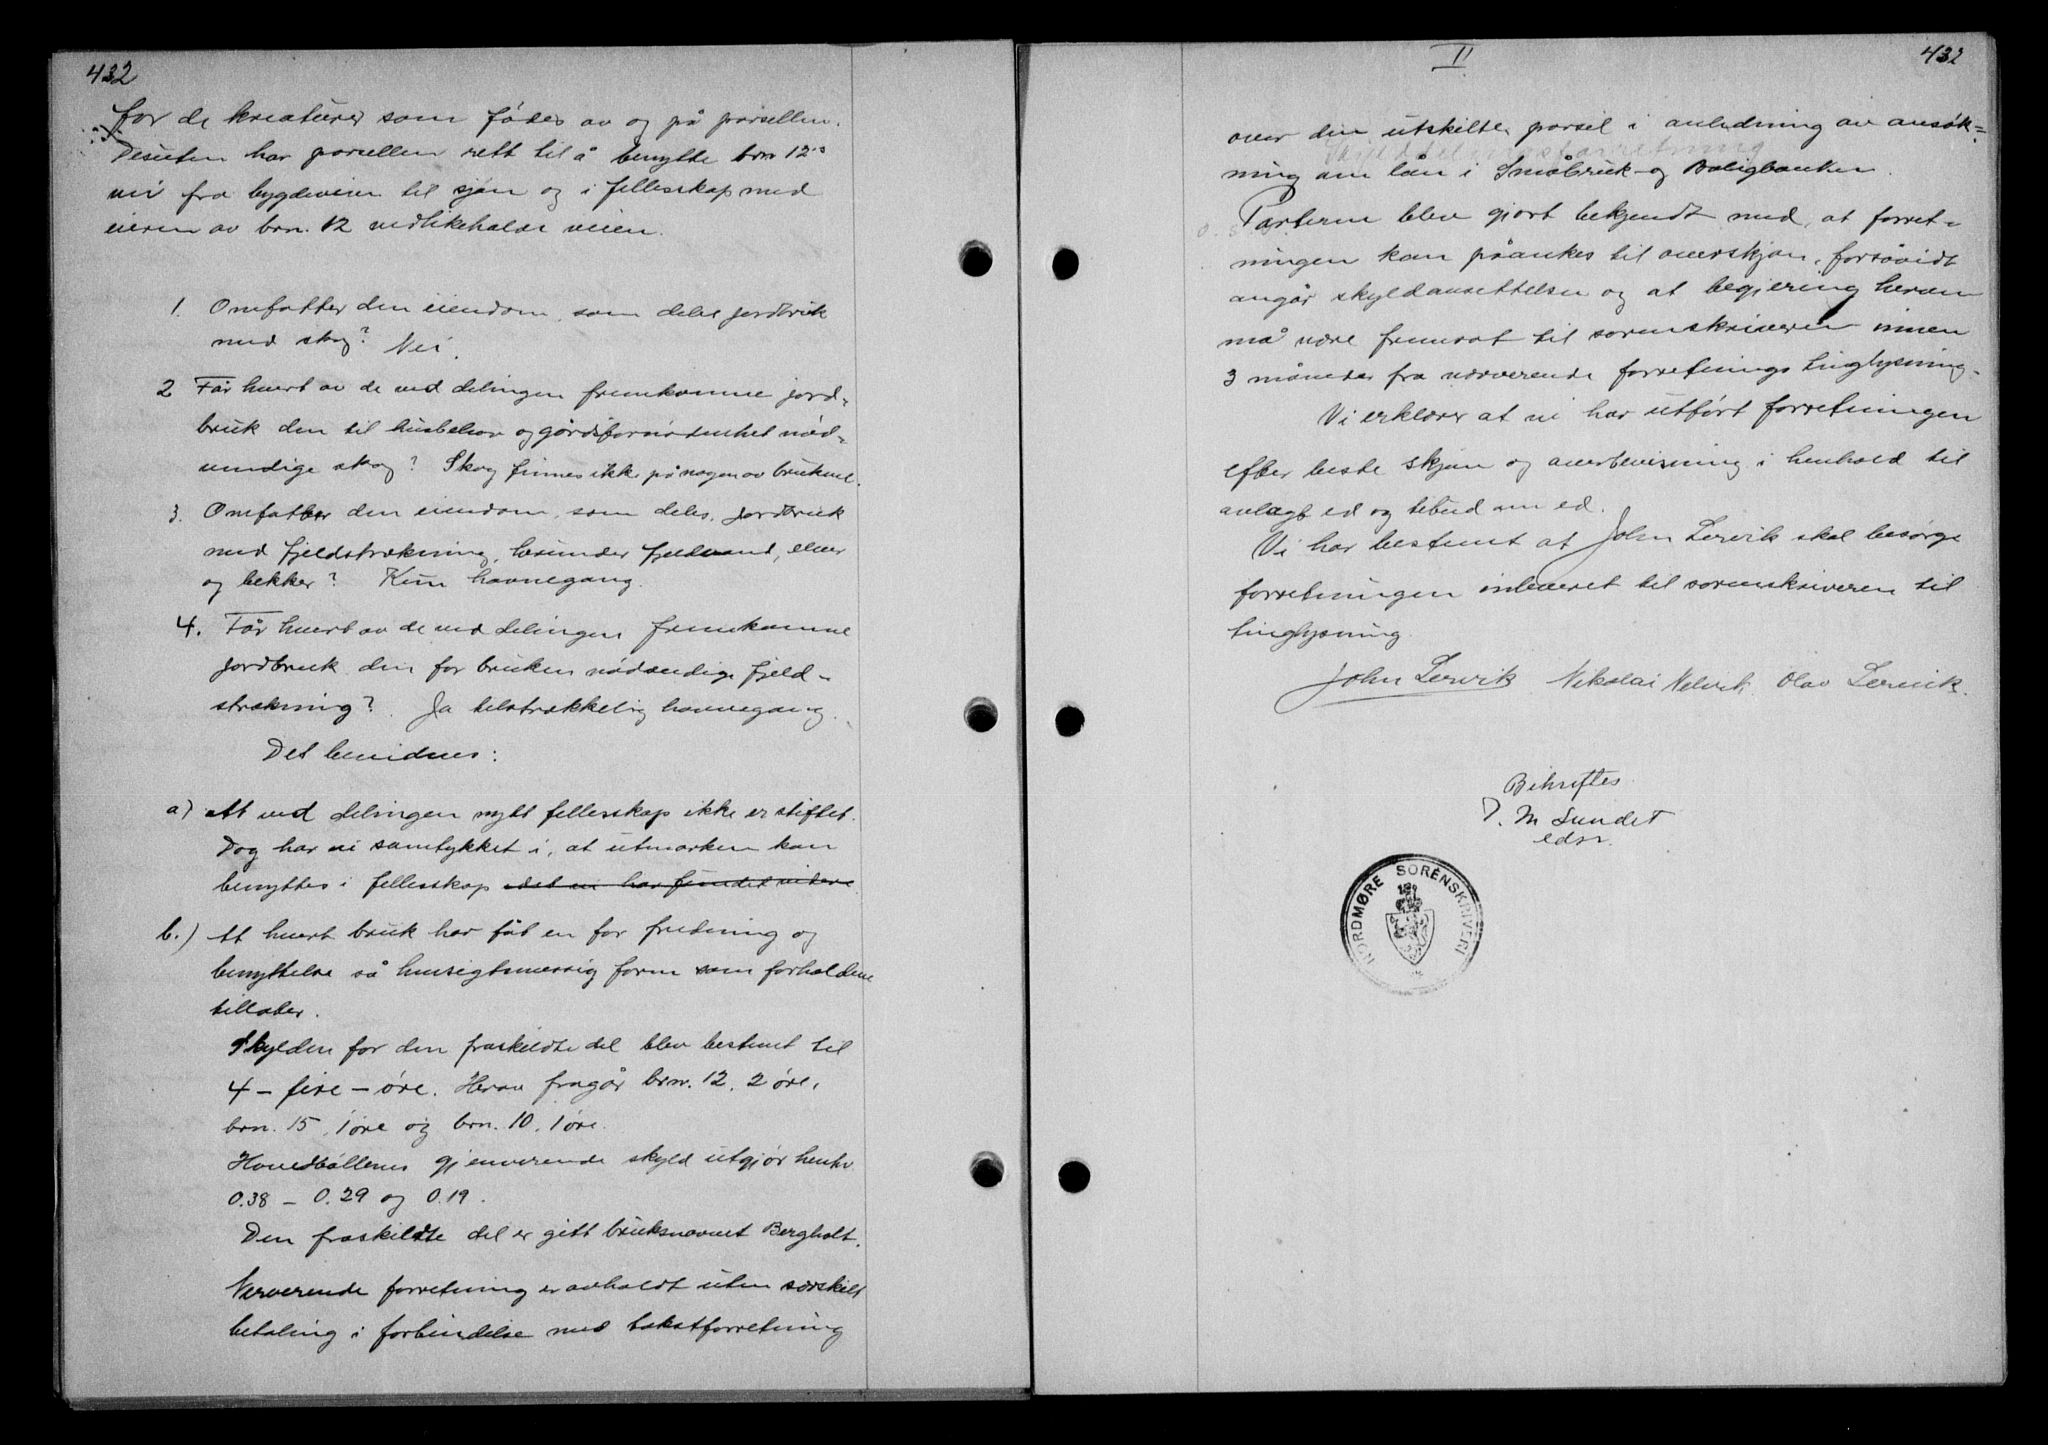 432
for de kreaturer som födes av og på parsellen.
Desuten har parsellen rett til å benytte brn 12s
vei fra bygdeveien til sjøen og i fellesskap med
eieren av brn. 12 vedlikeholde veien.
1. Omfatter den eiendom, som deles jordbruk
med skog? Nei.
2 Får hvert av de ved delingen fremkomne jord-
bruk den til husbehov og gårdsfornødenhet nød-
vendige skog? Skog finnes ikke på nogen av brukene.
3. Omfatter den eiendom, som deles, jordbruk
med fjeldstrækning, herunder fjeldvand, elver
og bekker? Kun havnegang.
4. Får hvert av de ved delingen fremkomne
jordbruk den for bruken nødvendige fjeld-
strækning? Ja tilstrækkelig havnegang.
Det bevidnes:
a) At ved delingen nytt fellesskap ikke er stiftet.
Dog har vi samtykket i, at utmarken kan
benyttes i fellesskap idet vi har fundet videre
b.) At hvert bruk har fåt en for fredning og
benyttelse så hensigtsmessig form som forholdene
tillater.
Skylden for den fraskildte del blev bestemt til
4 - fire - øre. Herav fragår brn. 12, 2 øre,
brn. 15, 1 øre og brn. 10, 1 øre.
Hovedbøllenes gjenverende skyld utgjør henhv
0.38 - 0.29 og 0.19.
Den fraskildte del er gitt bruksnavnet Bergholt.
Nerverende forretning er avholdt uten særskilt
betaling i forbindelse med takstforretning
II
432
over den utskilte parsel i anledning av ansøk-
Skylddelingsforretning
ning om lån i Småbruk- og Boligbanken.
Parterne blev gjort bekjendt med, at forret-
ningen kan påankes til overskjøn, forsåvidt
angår skyldansettelsen og at begjering herom
må være fremsat til sorenskriveren innen
3 måneder fra nærverende forretnings tinglysning.
Vi erklærer at vi har utført forretningen
efter beste skjøn og overbevisning i henhold til
avlagt ed og tilbud om ed.
Vi har bestemt at John Lervik skal besørge
forretningen innleveret til sorenskriveren til
tinglysning.
John Lervik Nikolai Nelvik Olav Lervik.
Bekreftes
D. M Sundet
edsv.
NORDMØRE SORENSKRIVERI